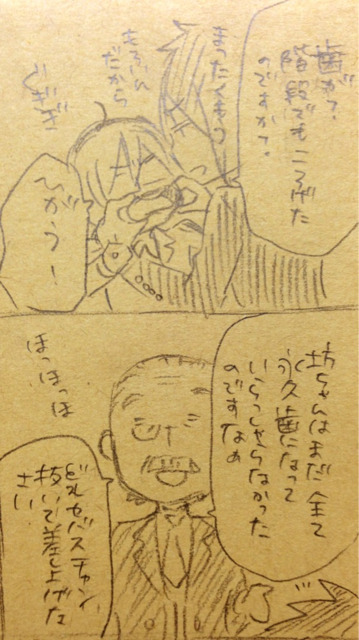 歯が?
階段でもころげた
のですか?
まったくもう
もろいん
だから
ぐぎぎ
ひがう!
坊ちゃんはまだ全て
永久歯になって
いらっしゃらなかった
のですなぁ
ほっほっほ
どれセバスチャン、
抜いて差し上げな
さい